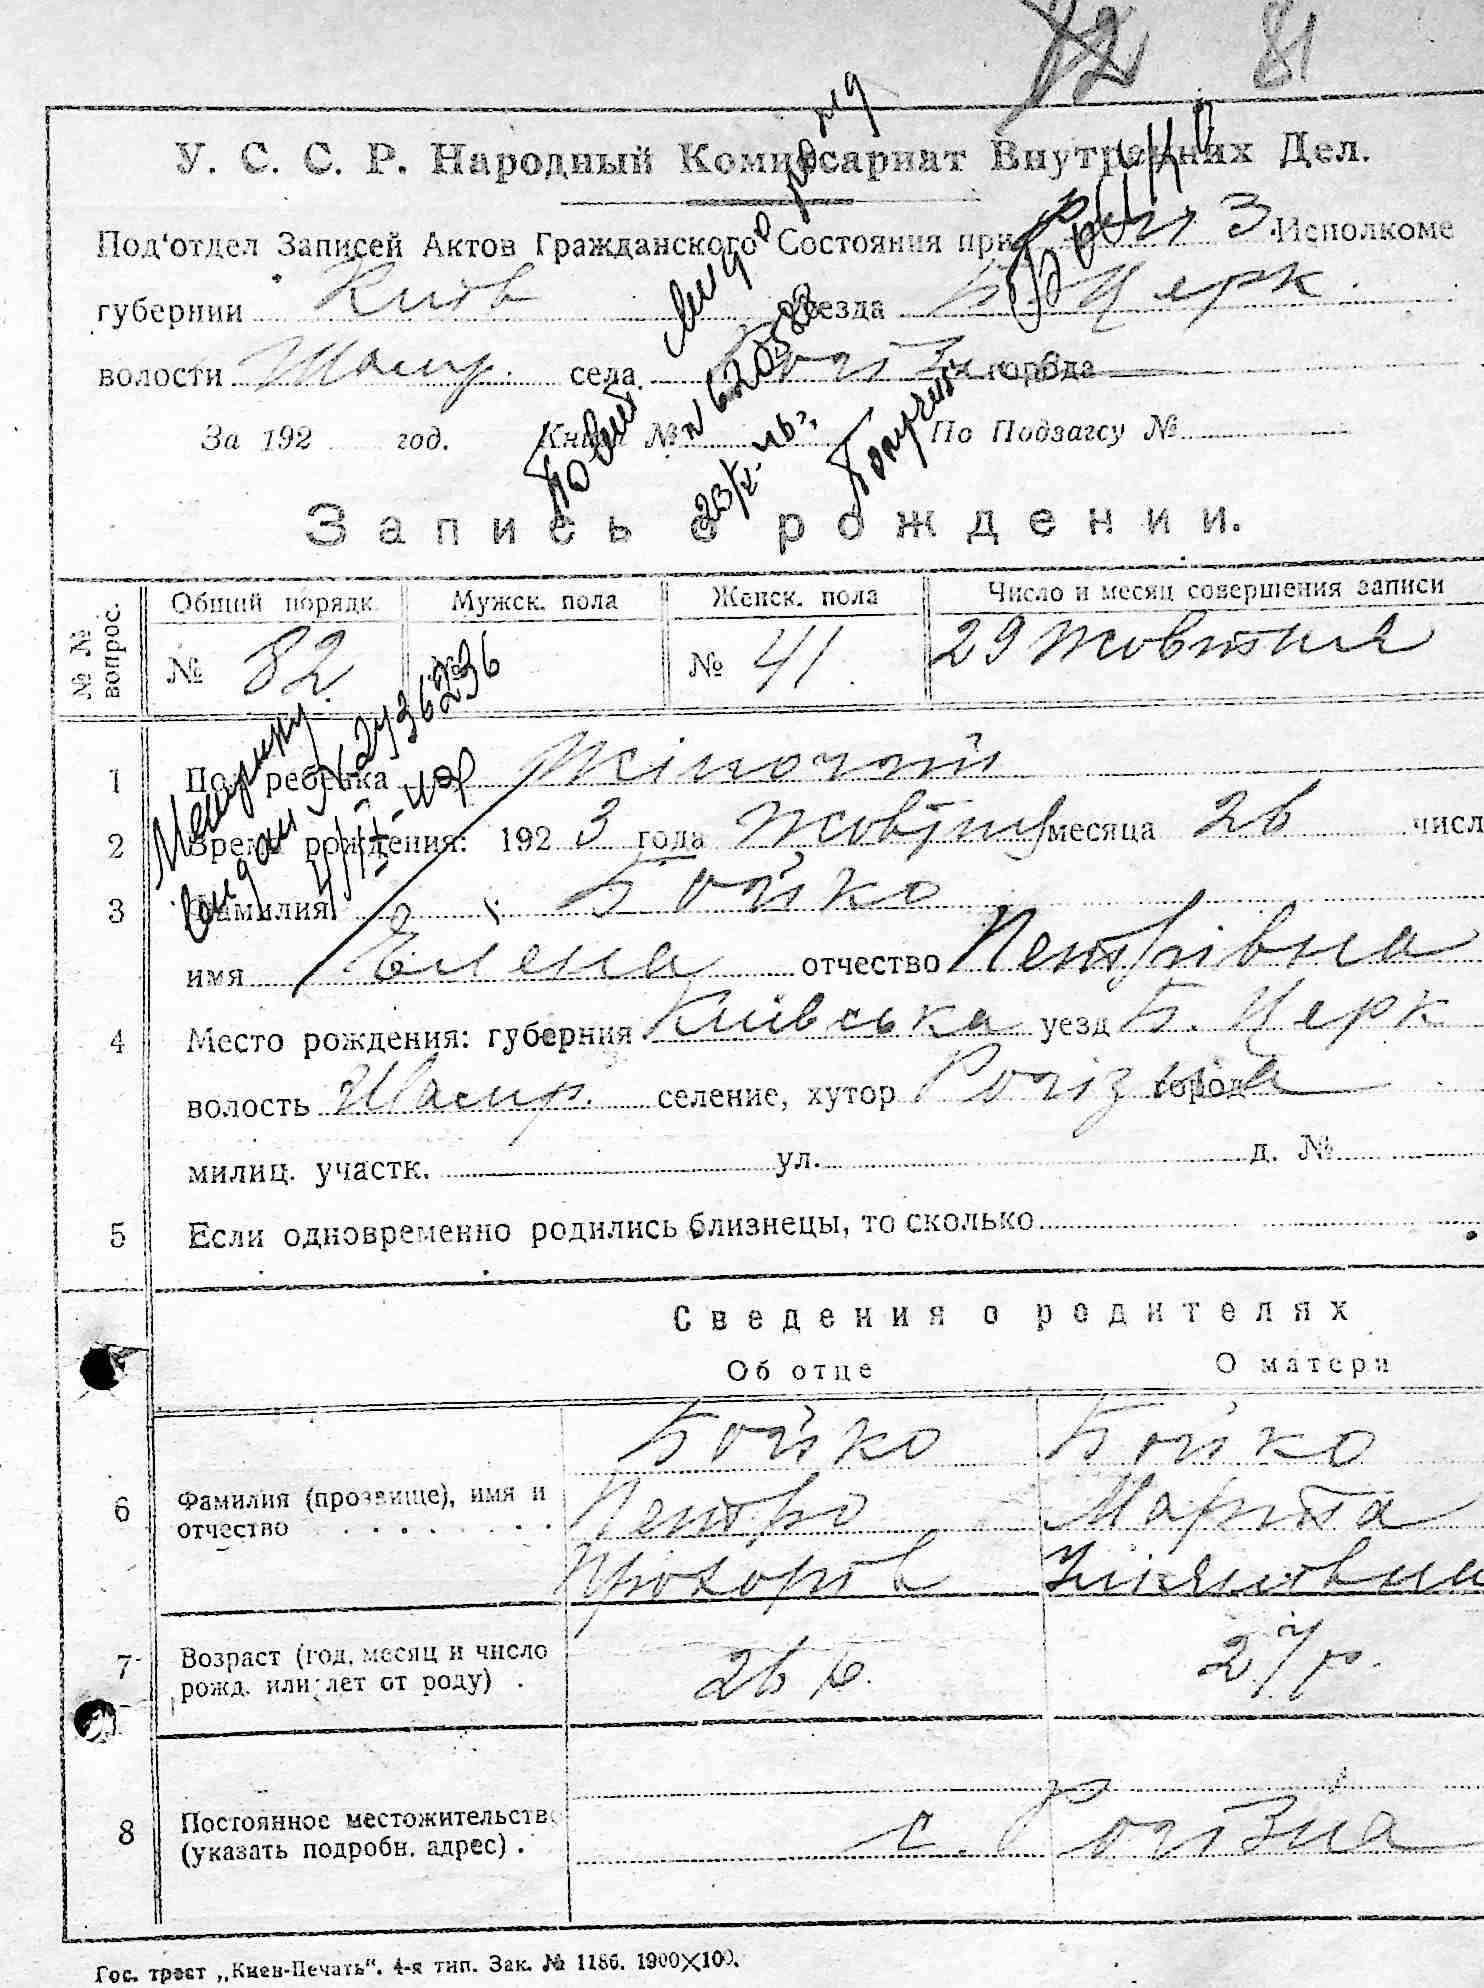 82 81
У. С. С. Р. Народный Комиссариат Внутренних Дел.
Под'отдел Записей Актов Гражданского Состояния при Исполкоме
губернии Київ уезда Б. Церк.
волости Шамр. села Рогізна города
За 192 год. Книга № По Подзагсу №
Запись о рождении.
№ № вопрос. Общий порядк. Мужск. пола Женск. пола Число и месяц совершения записи
№ 82 № № 41 29 Жовтня
1 Пол ребенка Жіночой
2 Время рождения: 1923 года Жовтня месяца 26 числ
3 Фамилия Бойко
имя Елена отчество Петрівна
4 Место рождения: губерния Київська уезд Б. Церк
волость Шамр. селение, хутор Рогізна город
милиц. участк. ул. д. №
5 Если одновременно родились близнецы, то сколько
Сведения о родителях
Об отце О матери
Бойко Бойко
6 Фамилия (прозвище), имя и Петро Марта
отчество Прохорів
7 Возраст (год, месяц и число
рожд. или лет от роду) . 26 р. 27 р.
8 Постоянное местожительств
(указать подробн. адрес) . с. Рогізна
Повт. видано
№ 620528
Получил Бойко
Метрику
видан № 2436236
Гос. трест „Киев-Печать". 4-я тип. Зак. № 1186. 1900×100.